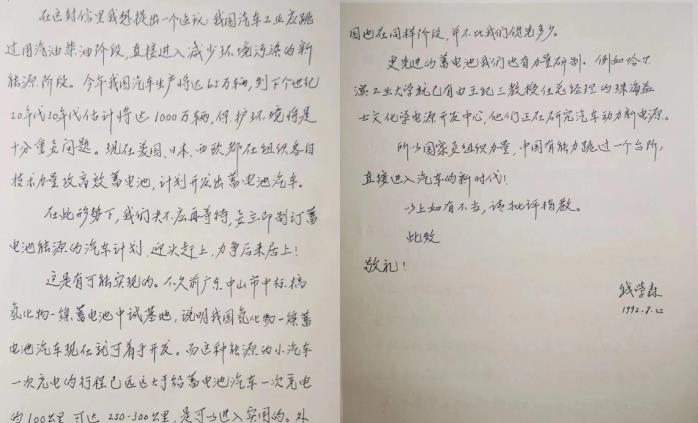 在这封信里我想提出一个建议：我国汽车工业应跳
过用汽油柴油阶段，直接进入减少环境污染的新
能源阶段。今年我国汽车生产将达65万辆，到下个世纪
20年代30年代估计将达1000万辆，保护环境将是
十分重要问题。现在美国、日本、西欧都在组织各自
技术力量攻高效蓄电池，计划开发出蓄电池汽车。
在此形势下，我们决不应再等待，要立即制订蓄
电池能源的汽车计划，迎头赶上，力争后来居上！
这是有可能实现的。不久前广东中山市中标搞
氢化物—镍蓄电池中试基地，说明我国氢化物—镍蓄
电池汽车现在就可着手开发。而这种能源的小汽车
一次充电的行程已远远大于铅蓄电池汽车一次充电
的100公里，可达250-300公里，是可以进入实用的。外
国也在同样阶段，并不比我们领先多少。
更先进的蓄电池我们也有力量研制。例如哈尔
滨工业大学就已有由王纪三教授任总经理的珠海益
士文化学电源开发中心，他们正在研究汽车动力新电源。
所以国家要组织力量，中国有能力跳过一个台阶，
直接进入汽车的新时代！
以上如有不当，请批评指教。
此致
敬礼！
钱学森
1992.8.22